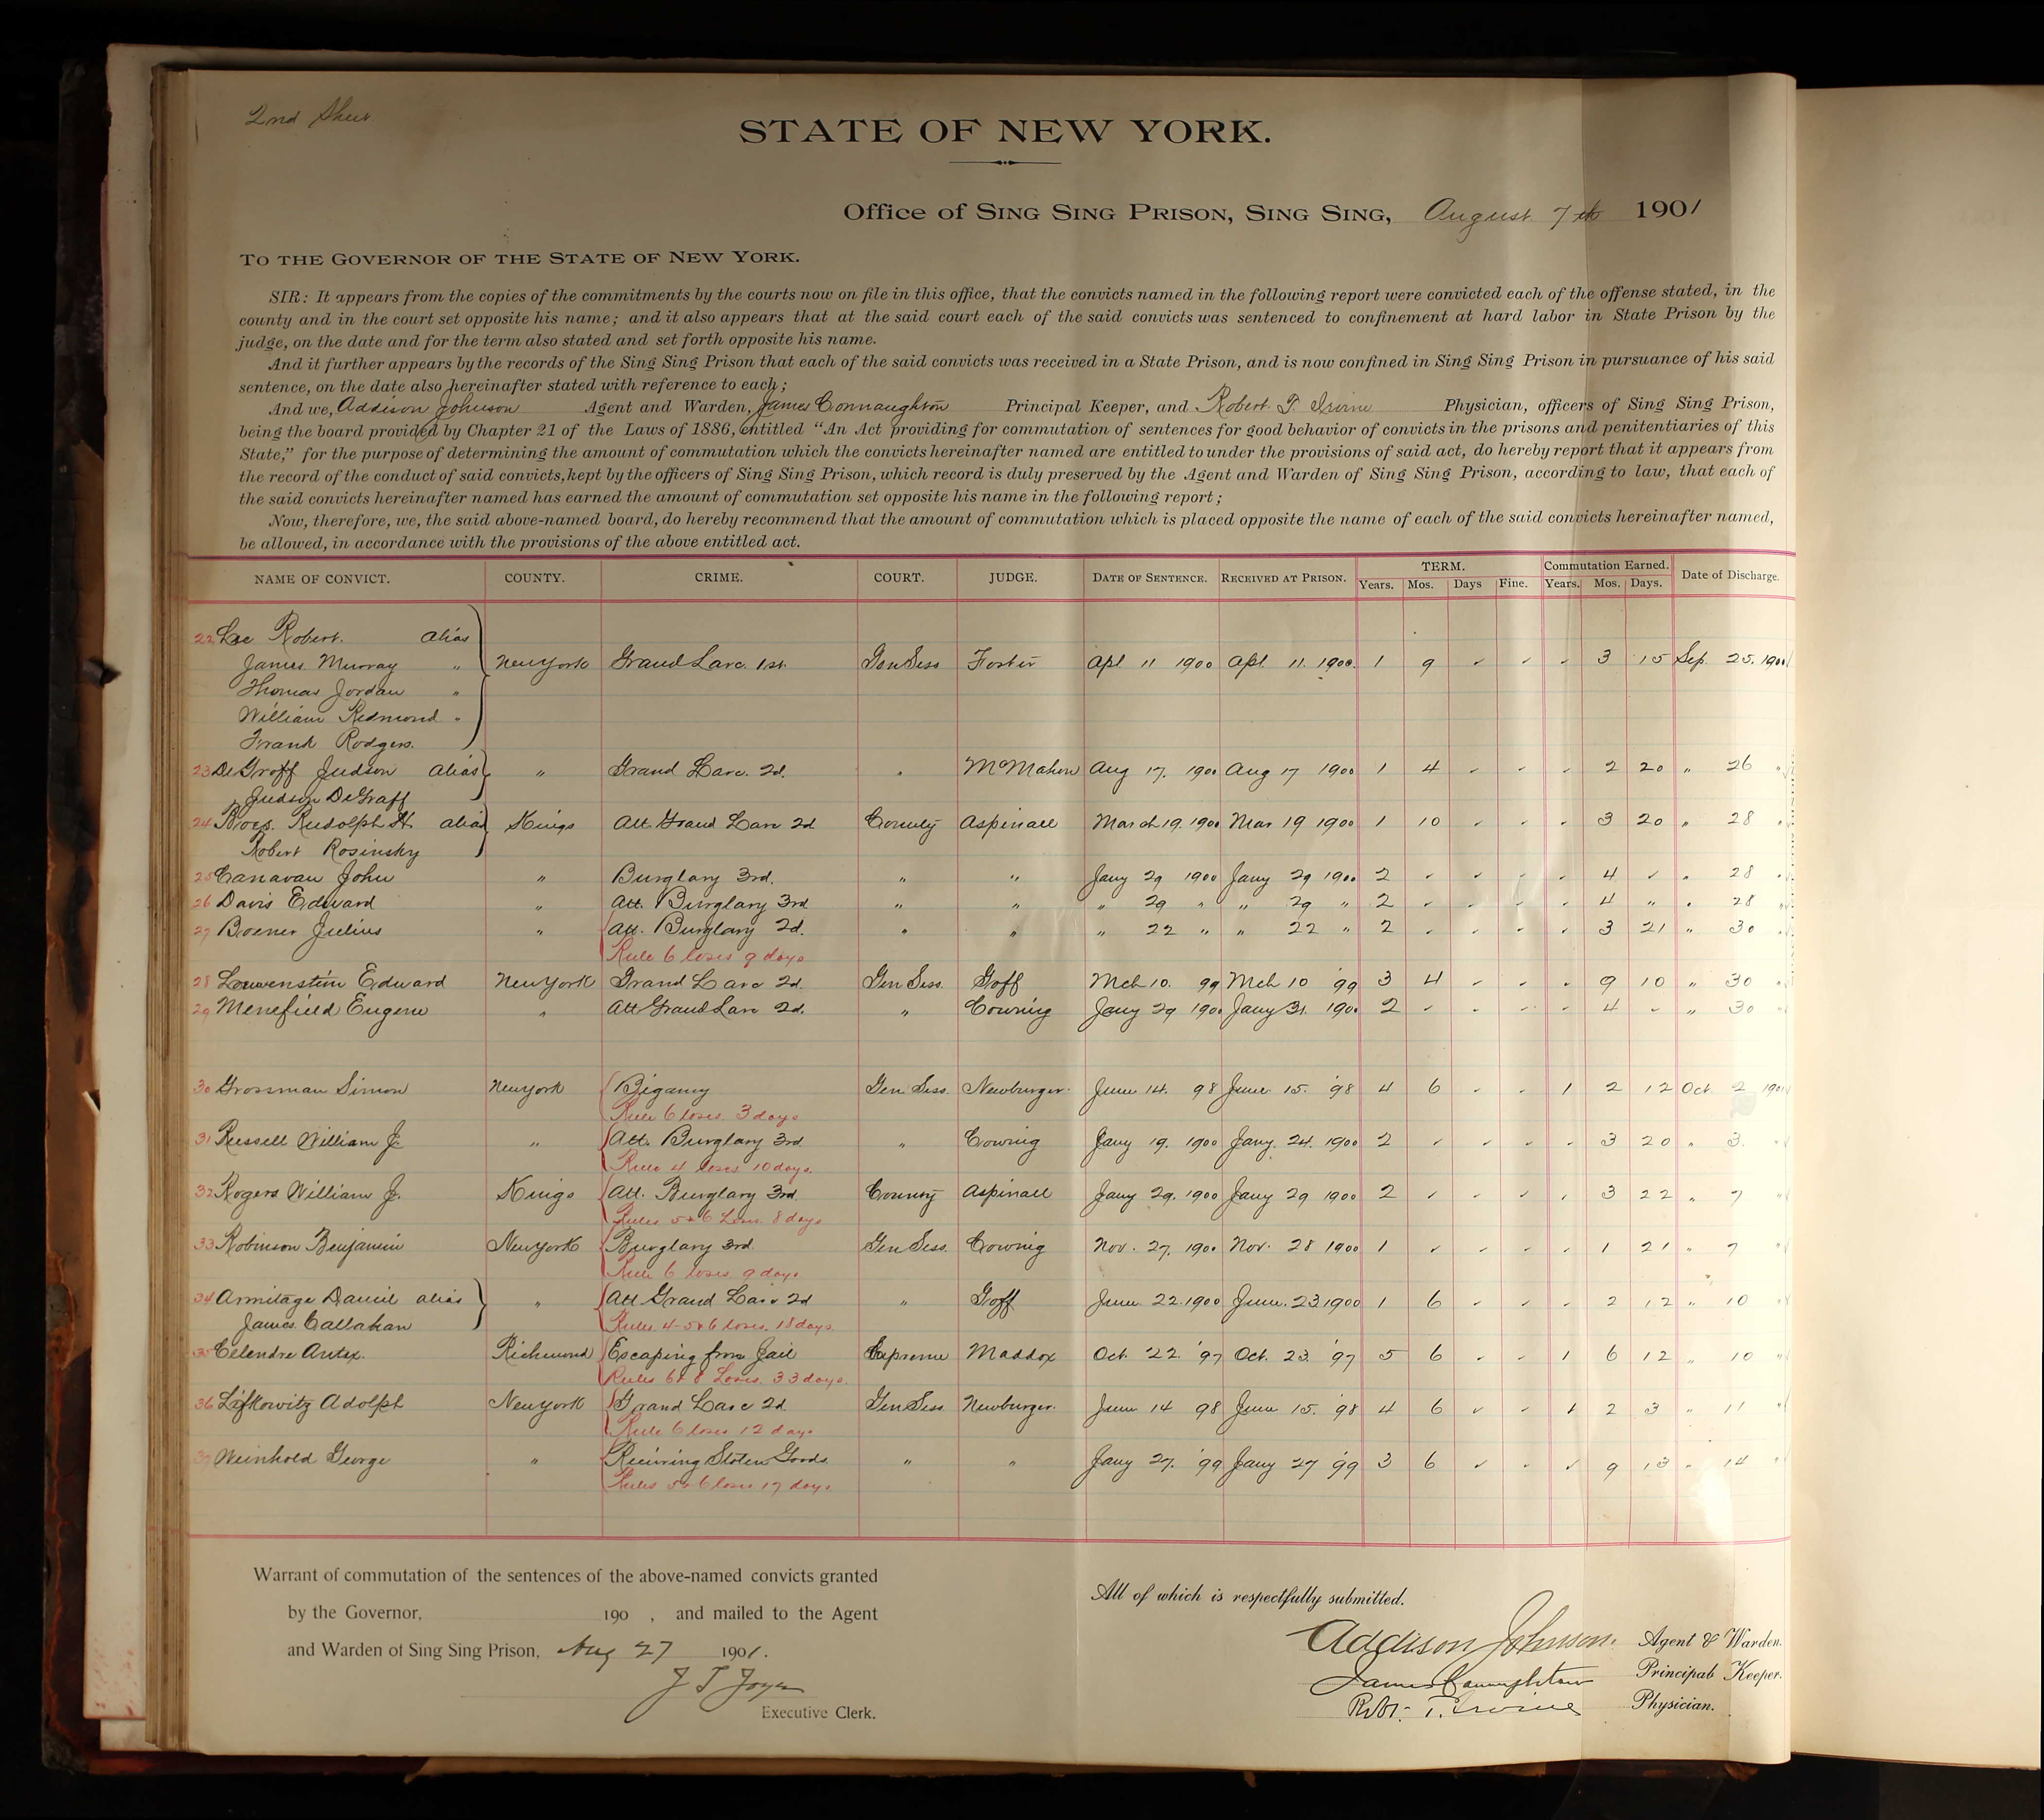 2nd Sheet
STATE OF NEW YORK.
Office of SING SING PRISON, SING SING, August 7th 1901
TO THE GOVERNOR OF THE STATE OF NEW YORK.
SIR: It appears from the copies of the commitments by the courts now on file in this office, that the convicts named in the following report were convicted each of the offense stated, in the
county and in the court set opposite his name; and it also appears that at the said court each of the said convicts was sentenced to confinement at hard labor in State Prison by the
judge, on the date and for the term also stated and set forth opposite his name.
And it further appears by the records of the Sing Sing Prison that each of the said convicts was received in a State Prison, and is now confined in Sing Sing Prison in pursuance of his said
sentence, on the date also hereinafter stated with reference to each;
And we, Addison Johnson Agent and Warden, James Connaughton Principal Keeper, and Robert T. Irvine Physician, officers of Sing Sing Prison,
being the board provided by Chapter 21 of the Laws of 1886, entitled “An Act providing for commutation of sentences for good behavior of convicts in the prisons and penitentiaries of this
State,” for the purpose of determining the amount of commutation which the convicts hereinafter named are entitled to under the provisions of said act, do hereby report that it appears from
the record of the conduct of said convicts, kept by the officers of Sing Sing Prison, which record is duly preserved by the Agent and Warden of Sing Sing Prison, according to law, that each of
the said convicts hereinafter named has earned the amount of commutation set opposite his name in the following report;
Now, therefore, we, the said above-named board, do hereby recommend that the amount of commutation which is placed opposite the name of each of the said convicts hereinafter named,
be allowed, in accordance with the provisions of the above entitled act.
NAME OF CONVICT. COUNTY. CRIME. COURT. JUDGE. DATE OF SENTENCE. RECEIVED AT PRISON. TERM. Commutation Earned. Date of Discharge.
Years. Mos. Days Fine. Years. Mos. Days.
22 Lee Robert. alias
James Murray " New York Grand Larc. 1st. Gen Sess Foster Apl 11 1900 Apl. 11. 1900. 1 9 " " " 3 15 Sep. 25. 1901
Thomas Jordan "
William Redmond "
Frank Rodgers.
23 DeGroff Judson alias " Grand Larc. 2d. " McMahon Aug 17. 1900 Aug 17 1900 1 4 " " " 2 20 " 26 "
Judson DeGraff
24 Boes. Rudolph H. alias Kings Att. Grand Larc 2d County Aspinall March 19. 1900 Mar 19 1900 1 10 " " " 3 20 " 28 "
Robert Rosinsky
25 Canavan John " Burglary 3rd. " " Jany 29 1900 Jany 29 1900 2 " " " " 4 " " 28 "
26 Davis Edward " Att. Burglary 3rd " " " 29 " " 29 " 2 " " " " 4 " " 28 "
27 Boener Julius " Att. Burglary 2d. " " " 22 " " 22 " 2 " " " " 3 21 " 30 "
Rule 6 loses 9 days
28 Louvenstein Edward New York Grand Larc 2d. Gen Sess. Goff Mch 10. 99 Mch 10 '99 3 4 " " " 9 10 " 30 "
29 Menefield Eugene " Att Grand Larc 2d. " Cowing Jany 29 1900 Jany 31. 1900 2 " " " " 4 " " 30 "
30 Grossman Simon New York Bigamy Gen. Sess. Newburger. June 14. 98 June 15. '98 4 6 " " 1 2 12 Oct. 2 1901
Rule 6 loses. 3 days
31 Russell William J. " Att. Burglary 3rd " Cowing Jany 19. 1900 Jany. 24. 1900 2 " " " " 3 20 " 3. "
Rule 4 loses 10 days.
32 Rogers William J. Kings Att. Burglary 3rd. County Aspinall Jany 29. 1900 Jany 29 1900 2 " " " " 3 22 " 7 "
Rules 5 & 6 Loses. 8 days
33 Robinson Benjamin New York Burglary 3rd. Gen Sess. Cowing Nov. 27. 1900 Nov. 28 1900 1 " " " " 1 21 " 7 "
Rule 6 loses 9 days.
34 Armitage Daniel alias " Att Grand Larc 2d " Goff June. 22. 1900 June. 23 1900 1 6 " " " 2 12 " 10 "
James. Callahan Rules 4-5 & 6 loses. 18 days.
35 Celendre Antex. Richmond Escaping from Jail Supreme Maddox Oct. 22. '97 Oct. 23. '97 5 6 " " 1 6 12 " 10 "
Rules 6 & 8 Loses. 33 days.
36 Lifkowitz Adolph New York Grand Larc 2d Gen Sess Newburger. June 14 98 June 15. '98 4 6 " " 1 2 3 " 11 "
Rule 6 loses 12 days
37 Weinhold George " Receiving Stolen Goods " " Jany 27. '99 Jany 27 '99 3 6 " " " 9 13 " 14 "
Rules 5 & 6 loses 17 days.
Warrant of commutation of the sentences of the above-named convicts granted
by the Governor, 190 , and mailed to the Agent
and Warden of Sing Sing Prison, Aug 27 1901.
J T Joyce
Executive Clerk.
All of which is respectfully submitted.
Addison Johnson. Agent & Warden.
James Connaughton Principal Keeper.
Robt. T. Irvine Physician.